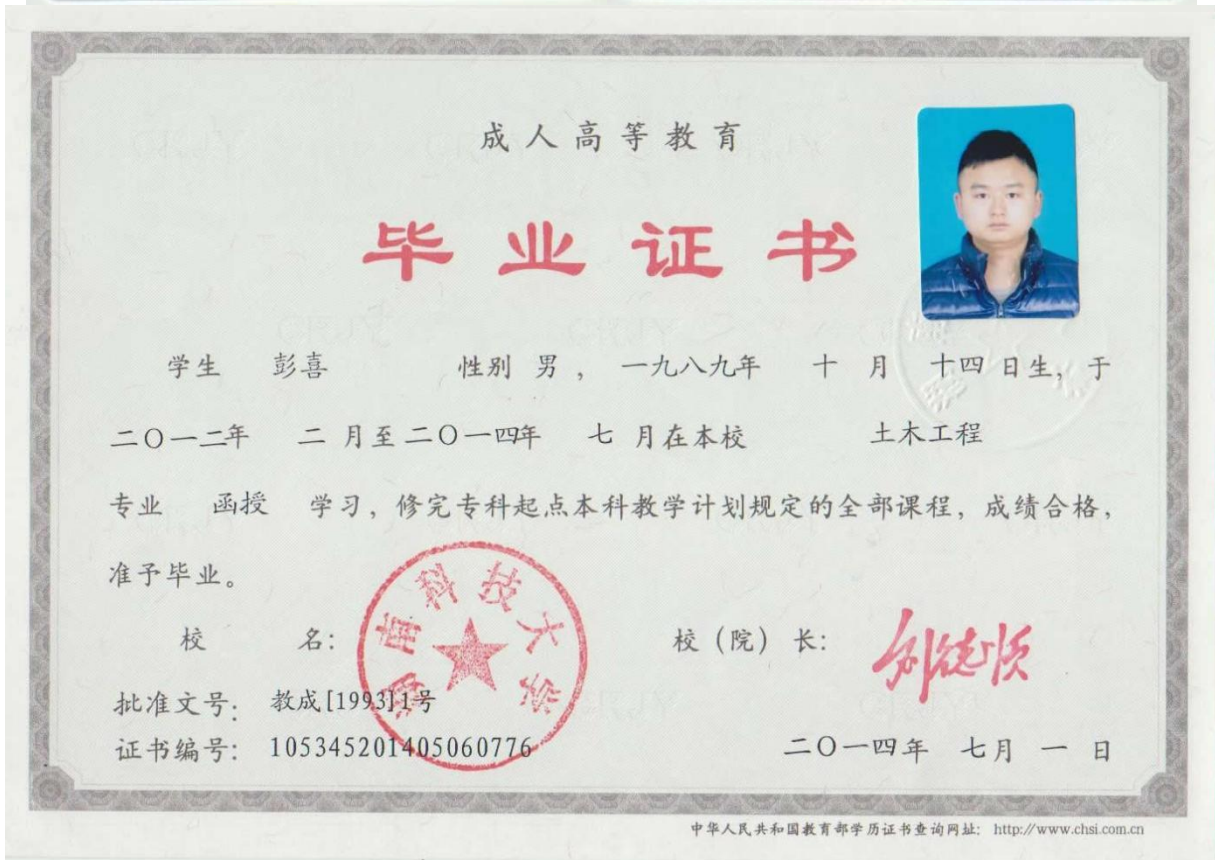 成人高等教育
毕业证书
学生 彭喜 性别 男，一九八九年 十 月 十四 日生，于
二〇一二年 二 月至二〇一四年 七 月在本校 土木工程
专业 函授 学习，修完专科起点本科教学计划规定的全部课程，成绩合格，
准予毕业。
校 名：
湖南科技大学
校（院）长：
刘德顺
批准文号：教成[1993]1号
证书编号：105345201405060776
二〇一四年 七月 一 日
中华人民共和国教育部学历证书查询网址：http://www.chsi.com.cn